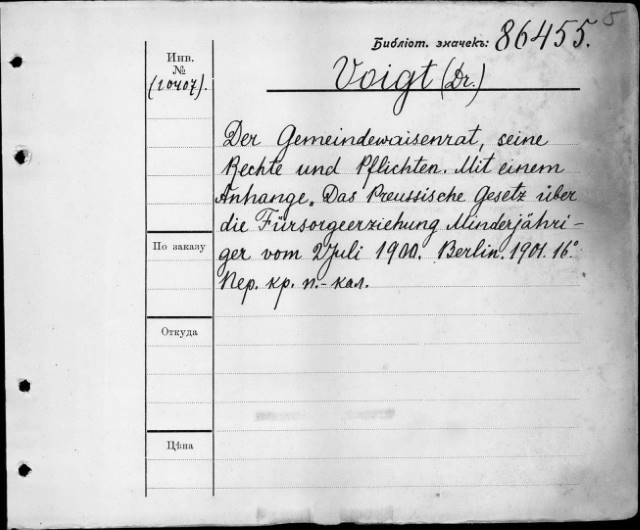 5
Библіот. значекъ: 86455.
Инв.
№
(10407).
Voigt (Dr.)
Der Gemeindewaisenrat, seine
Rechte und Pflichten. Mit einem
Anhange. Das Preussische Gesetz über
die Fürsorgeerziehung Minderjähri-
ger vom 2 Juli 1900. Berlin. 1901. 16°
Пер. кр. п.-кал.
По заказу
Откуда
Цѣна